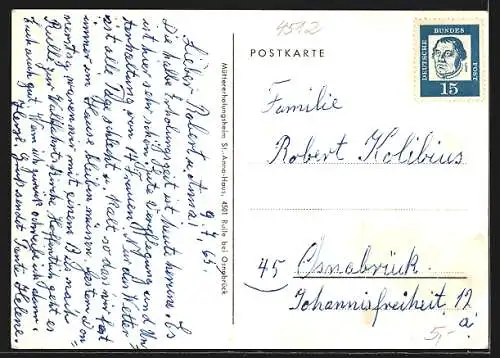 4512
POSTKARTE
DEUTSCHE
BUNDES
POST
15
Familie
Robert Kolibius
45 Osnabrück
Johannisfreiheit 12
a.
5,-
Müttererholungsheim St.-Anna-Haus, 4501 Rulle bei Osnabrück
9.7.65.
Liebe Robert u. Anna!
Die halbe Erholungszeit ist heute herum. Es
ist hier sehr schön. Gute Verpflegung und Un-
terhaltung von 14 Frauen. Nur das Wetter
ist alle Tage schlecht u. kalt so das wir fast
immer im Hause bleiben müssen. Gestern Don-
nerstag waren wir mit einem Bus nach
Rulle zur Wallfahrtskirche. Hoffentlich geht es
Euch auch gut. Wenn ich zurück
Herzl. Grüße sendet Tante Helene.